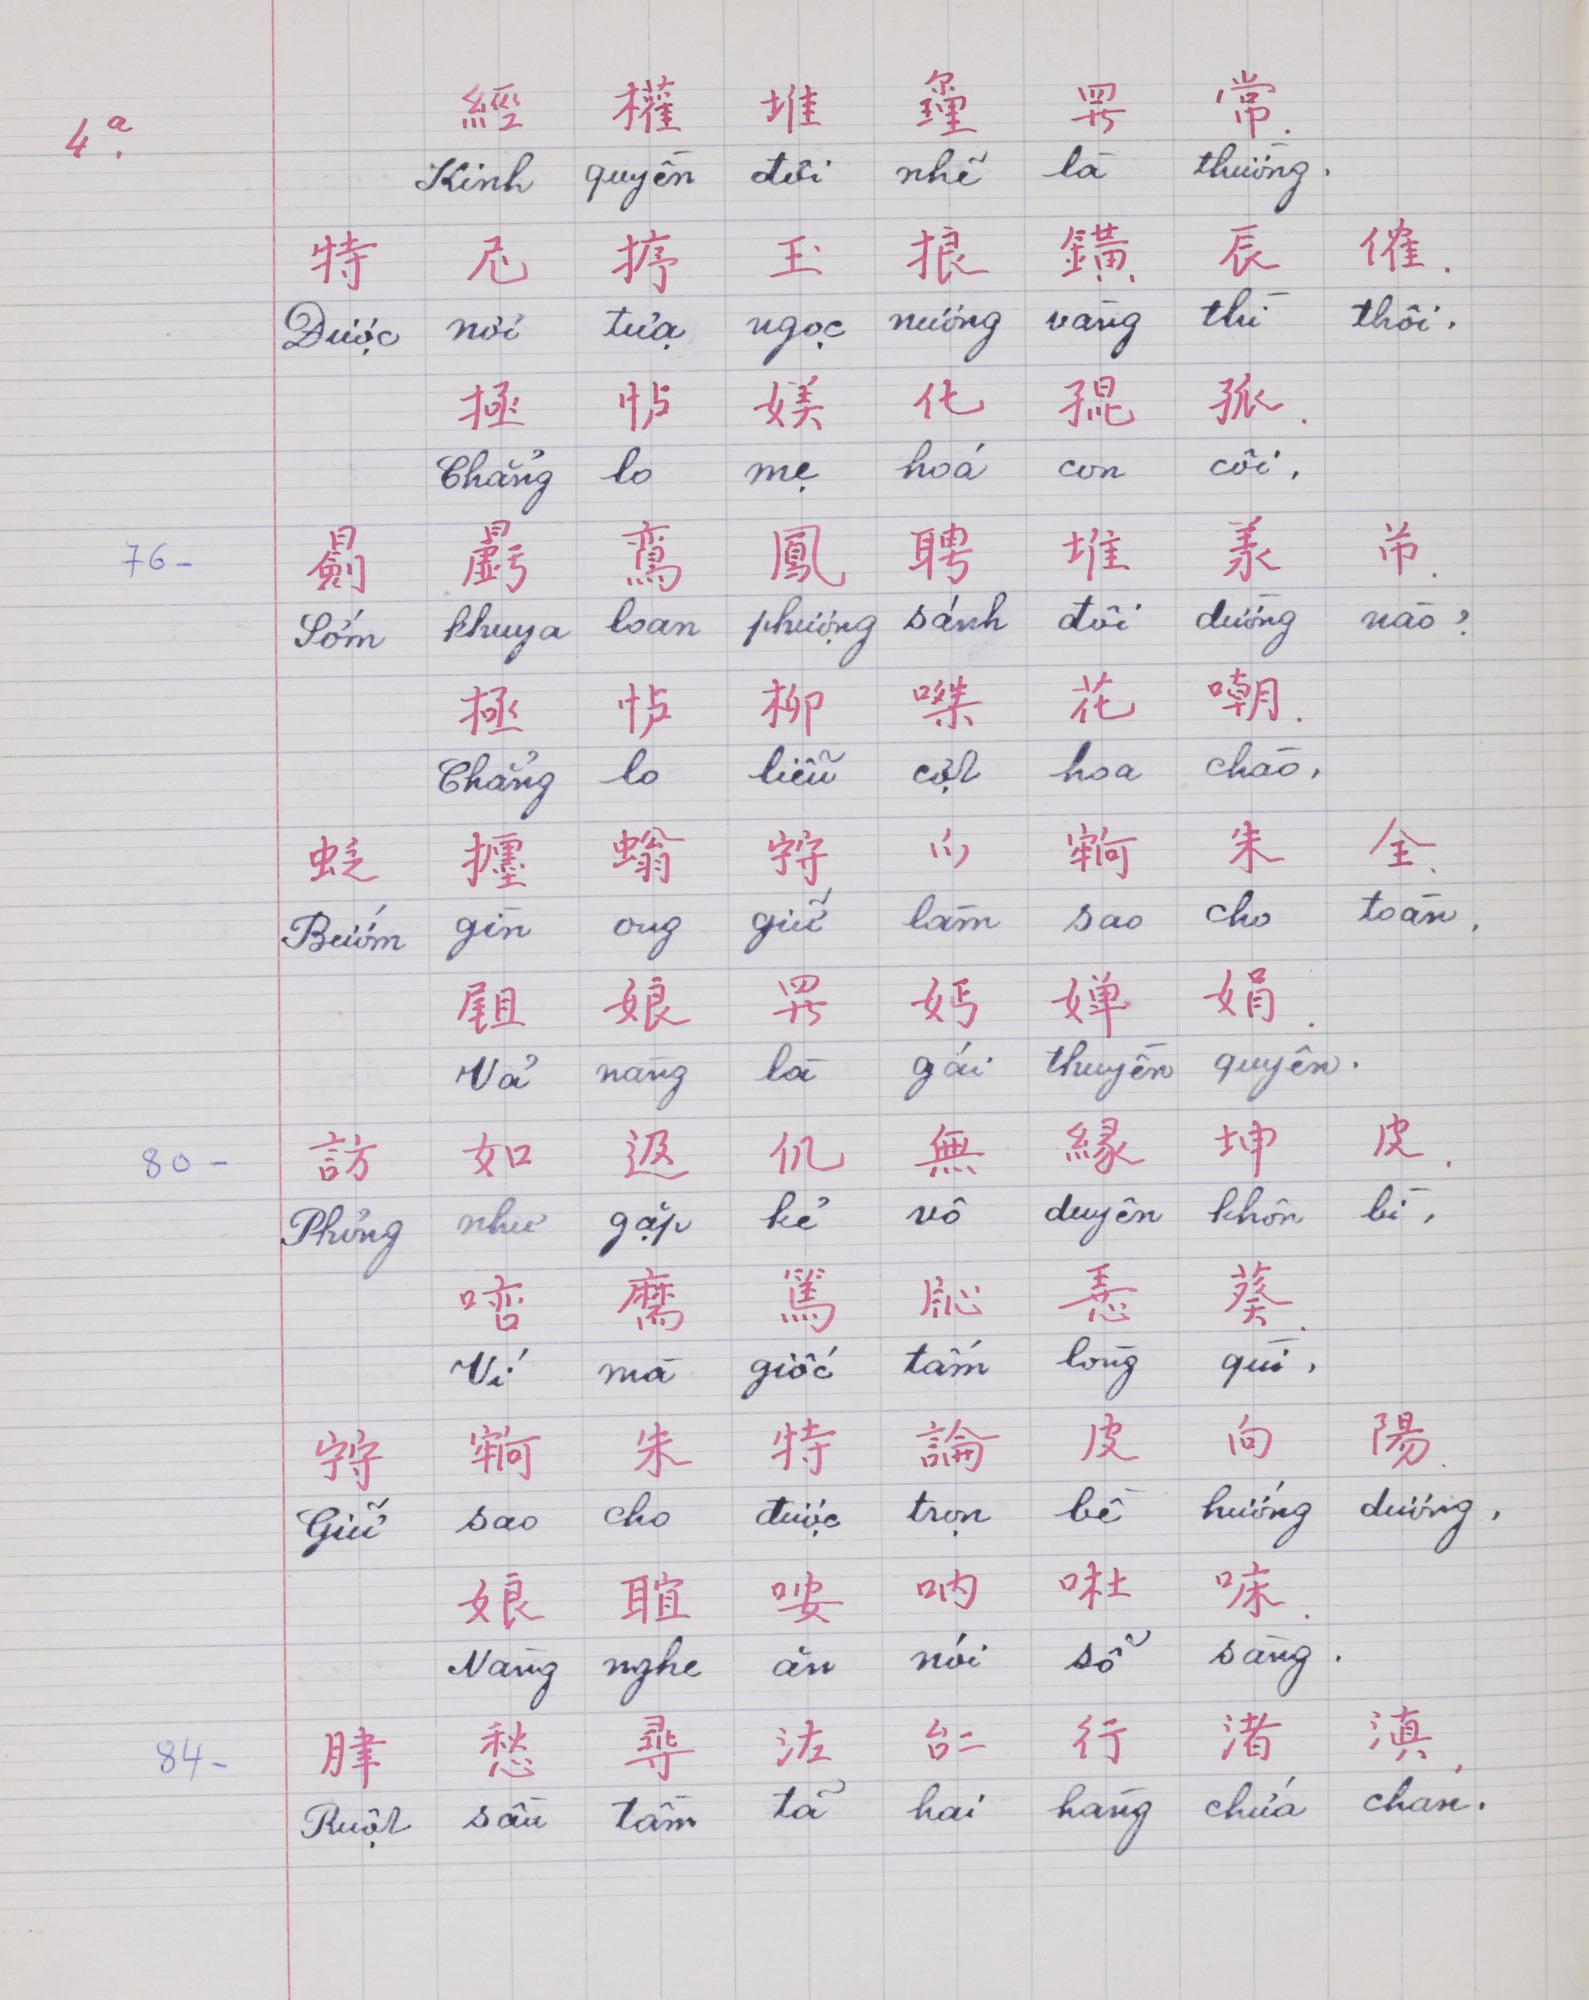 4a.
經 權 堆 𨤰 𱺵 常.
Kinh quyền đôi nhẽ là thường.
特 尼 㨿 玉 掑 鐄 辰 催.
Được nơi tựa ngọc nương vàng thì thôi.
拯 怗 媄 化 𡥵 孤.
Chẳng lo mẹ hoá con côi,
76-
𣌋 𣌉 鸞 鳳 聘 堆 羕 芇.
Sớm khuya loan phượng sánh đôi dường nào?
拯 怗 柳 㗫 花 嘲.
Chẳng lo liễu cợt hoa chào,
𧊉 㩒 螉 𡨺 爫 牢 朱 全.
Bướm gìn ong giữ làm sao cho toàn,
娘 𱺵 妈 嬋 娟.
Vả nàng là gái thuyền quyên.
80-
訪 如 仉 無 緣 坤 皮.
Phỏng như gặp kẻ vô duyên khôn bì,
篤 𢚸 葵.
Ví mà giốc tấm lòng quì,
𡨺 牢 朱 特 論 皮 向 陽.
Giữ sao cho được trọn bề hướng dương,
娘 𦖑 咹 吶 𠰍 床.
Nàng nghe ăn nói sỗ sàng.
84-
愁 尋 𠄩 行 渚 滇.
Ruột sầu tầm tã hai hàng chứa chan.